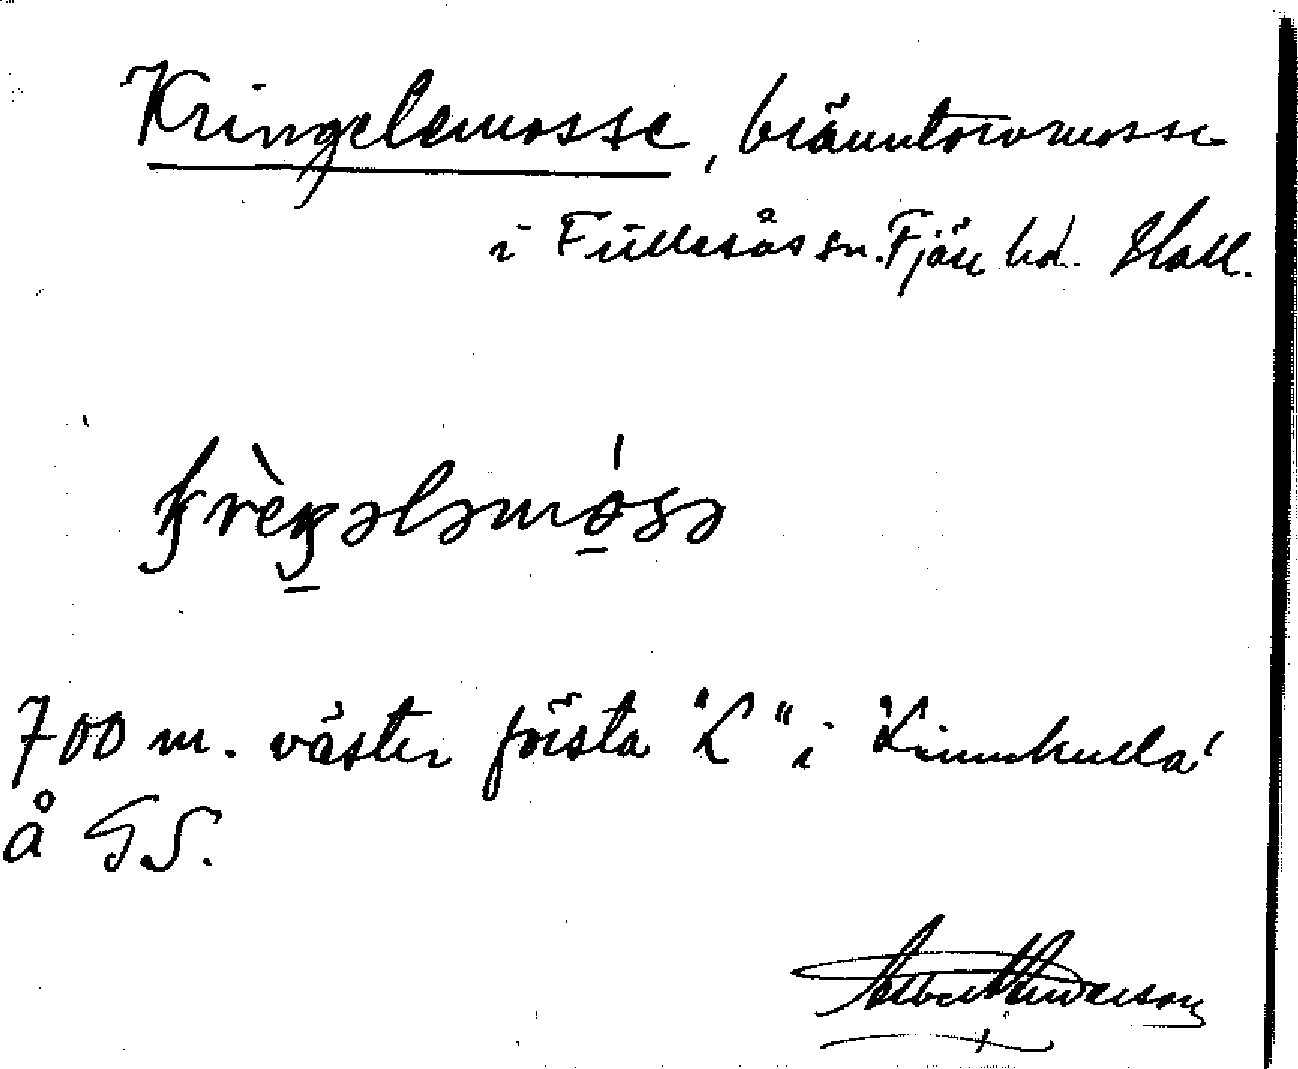 Kringelemosse, bränntorvmosse
i Fjällesås sn. Fjäre hd. Hall.
700 m. väster första "L" i "Linnhulla"
å G.S.
Albert Anderson